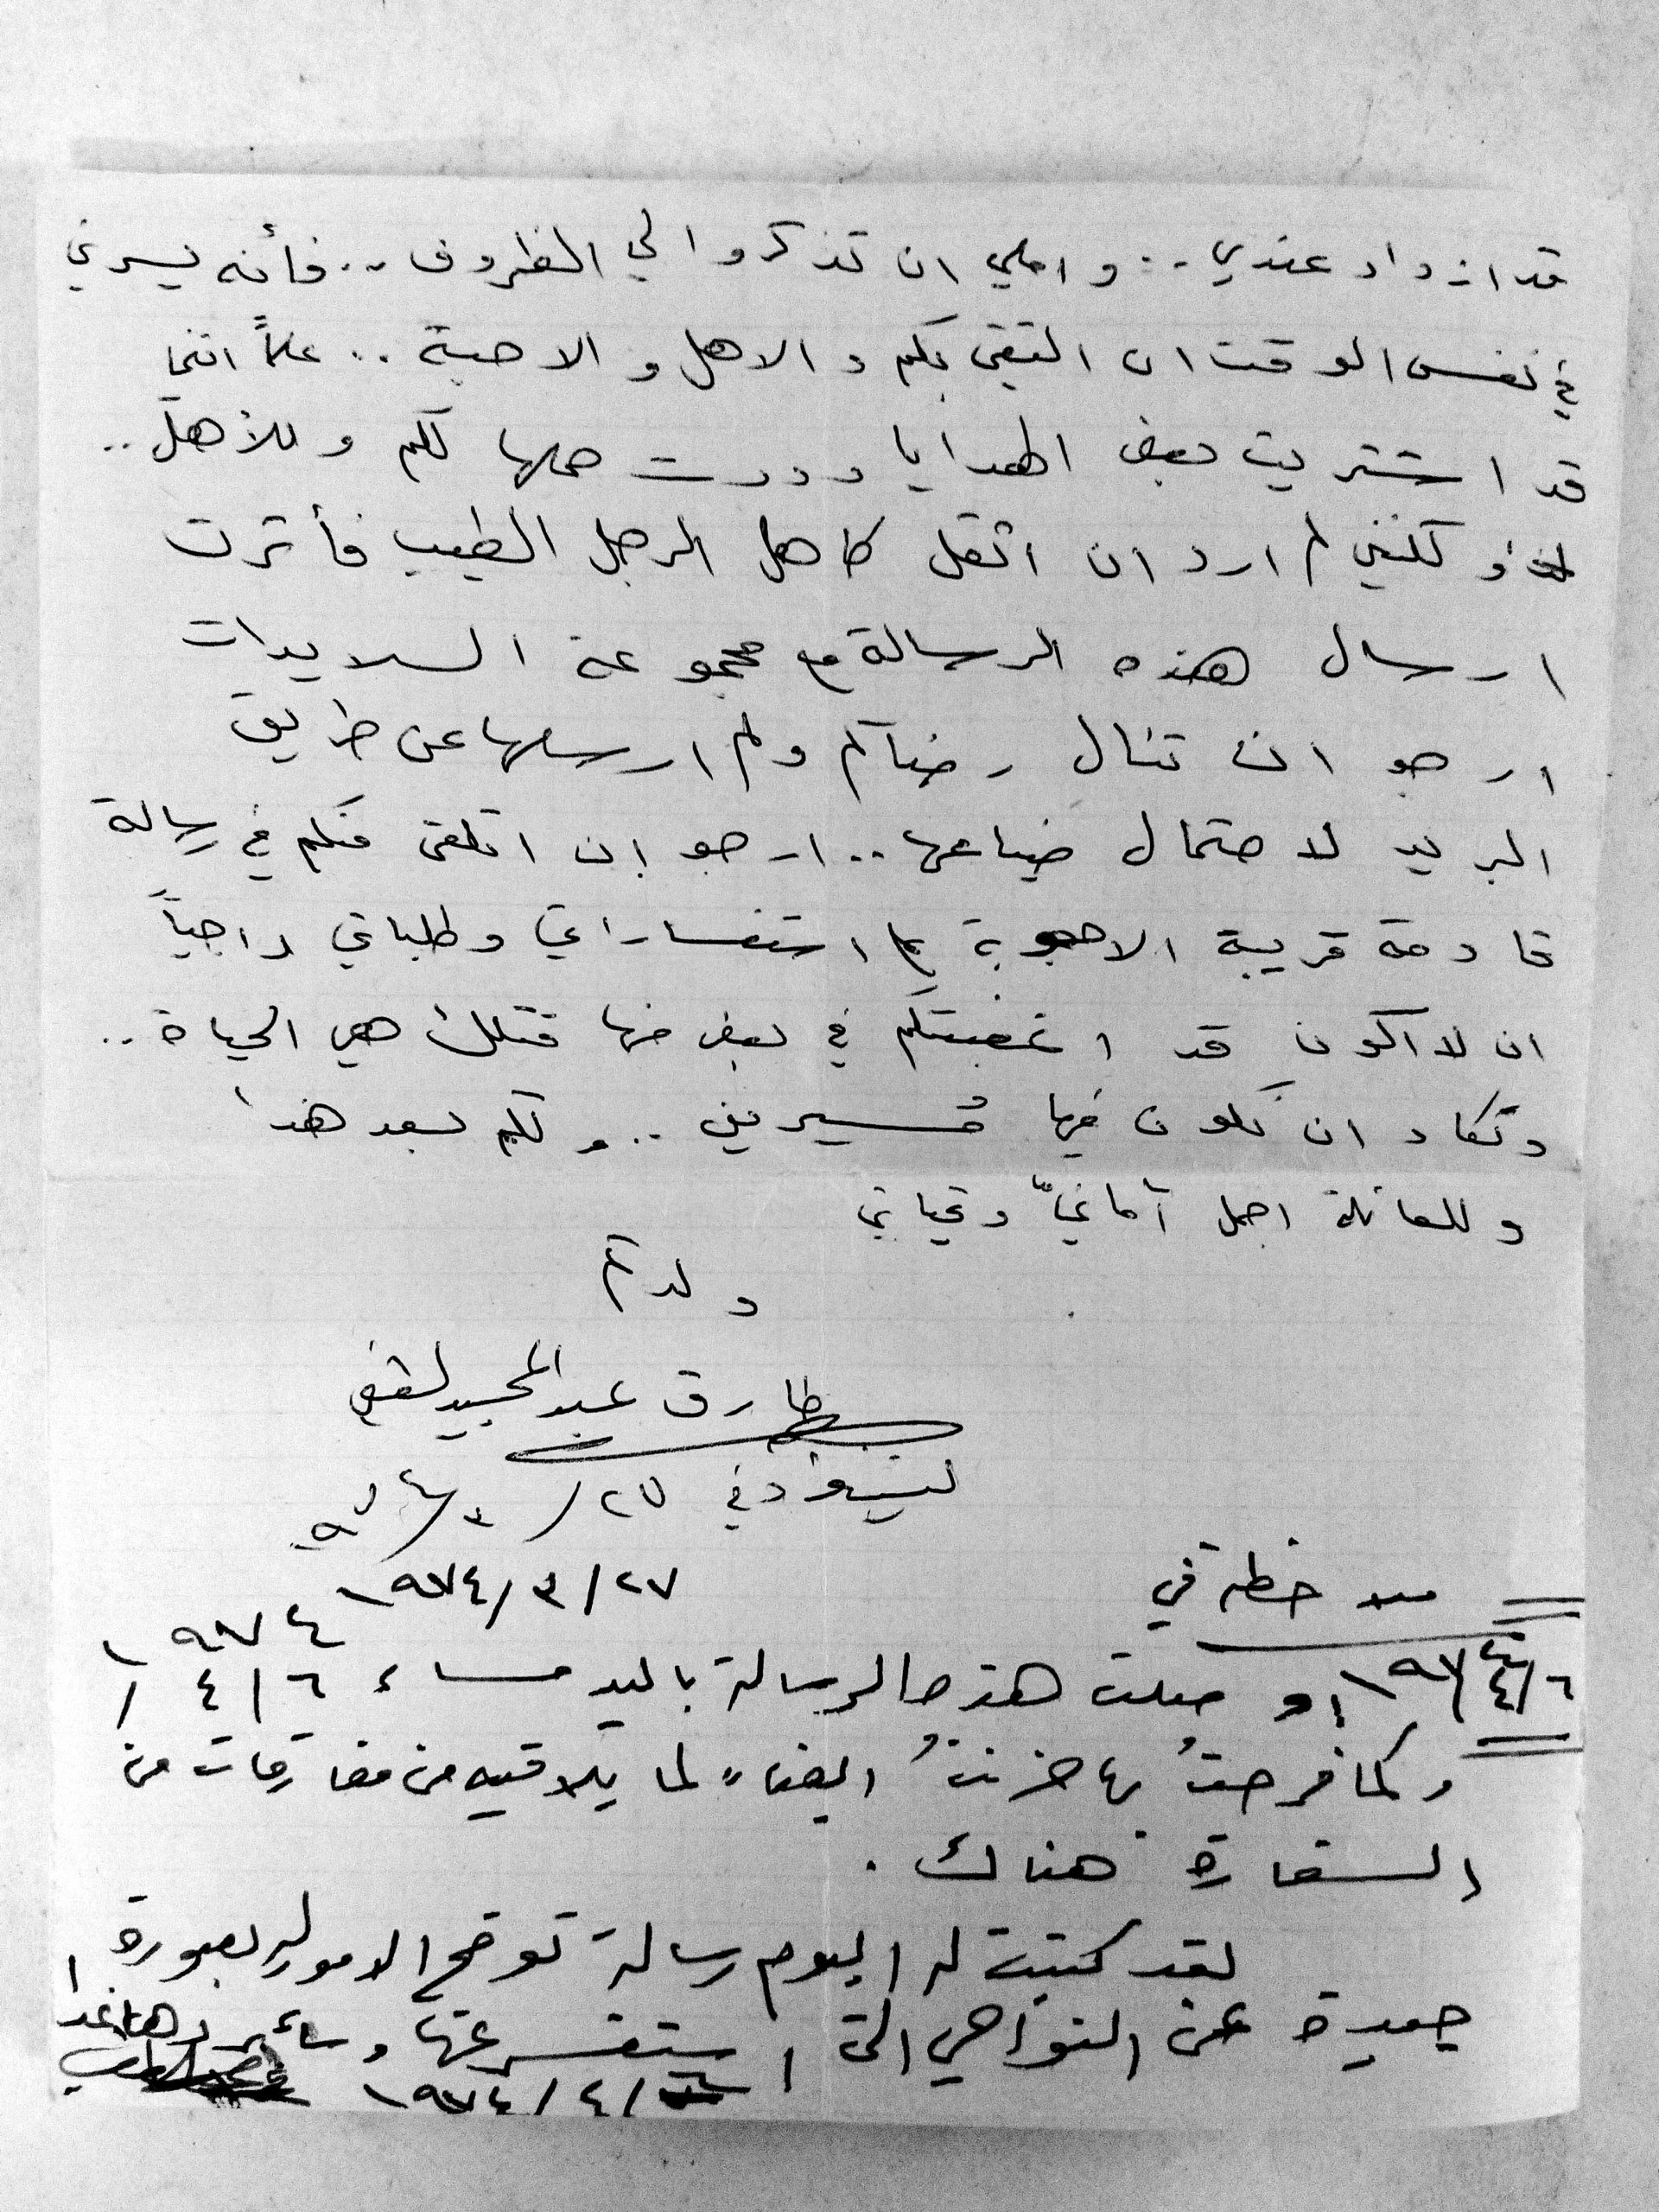 قد ازداد عندي .. واملي ان تذكروا لي الظروف .. فأنه يسرني
في نفس الوقت ان التقي بكم والاهل والاحبة .. علماً انني
قد اشتريت بعض الهدايا وددت حملها لكم وللأهل ..
ولكنني لم ارد ان اثقل كاهل الرجل الطيب فأثرت
ارسال هذه الرسالة مع مجموعة السلايدات
ارجو ان تنال رضاكم ولم ارسلها عن طريق
البريد لاحتمال ضياعها .. ارجو ان اتلقى منكم في رسالة
قادمة قريبة الاجوبة استفساراتي وطلباتي راجياً
ان لا اكون قد اغضبتكم في بعض منها فتلك هي الحياة ..
ونكاد ان نكون فيها مُسيرين .. ولكم بعد هذا
وللعائلة اجمل آمانيّ وتحياتي
ولدكم
طارق عبد المجيد
في ٢٧/٣/٩٧٤
٢٧/٣/١٩٧٤
ملاحظة في
٦/٤/١٩٧٤ وصلت هذه الرسالة باليد مساء ٦/٤/١٩٧٤
وكما فرحتُ بها حزنتُ ايضاً لما يلاقيه من مفارقات من
السفارة هناك .
لقد كتبت له اليوم رسالة توضح الامور له بصورة
جيدة عن النواحي التي استفسر عنها وسأبردها غدا
/٤/١٩٧٤